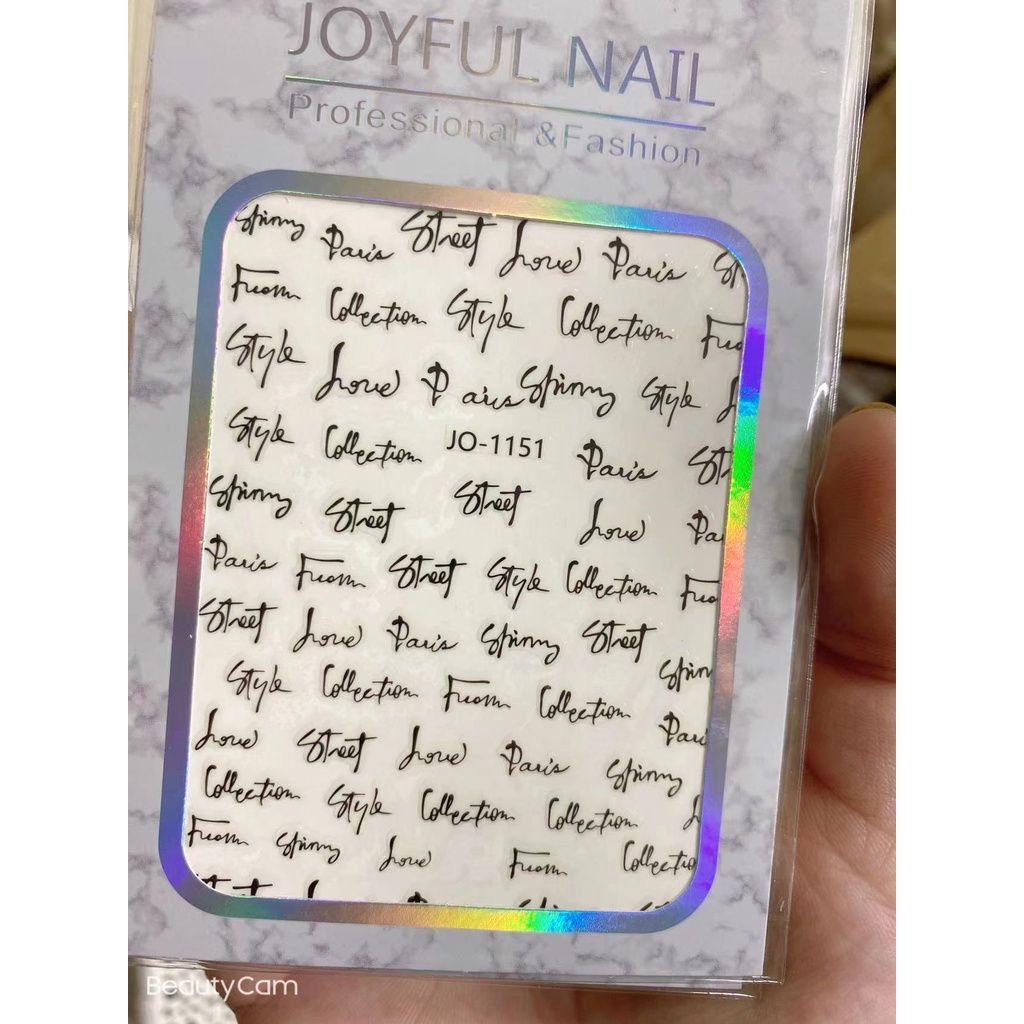 JOYFUL NAIL
Professional &Fashion
Spinny Paris Street Love Paris
From Collection Style Collection
Style Love Paris Spinny Style
Style Collection JO-1151 Paris
Spinny Street Street Love
Paris From Street Style Collection
Street Love Paris Spinny Street
Style Collection From Collection
Love Street Love Paris Spinny
Collection Style Collection Collection
From Spinny Love From Collection
BeautyCam